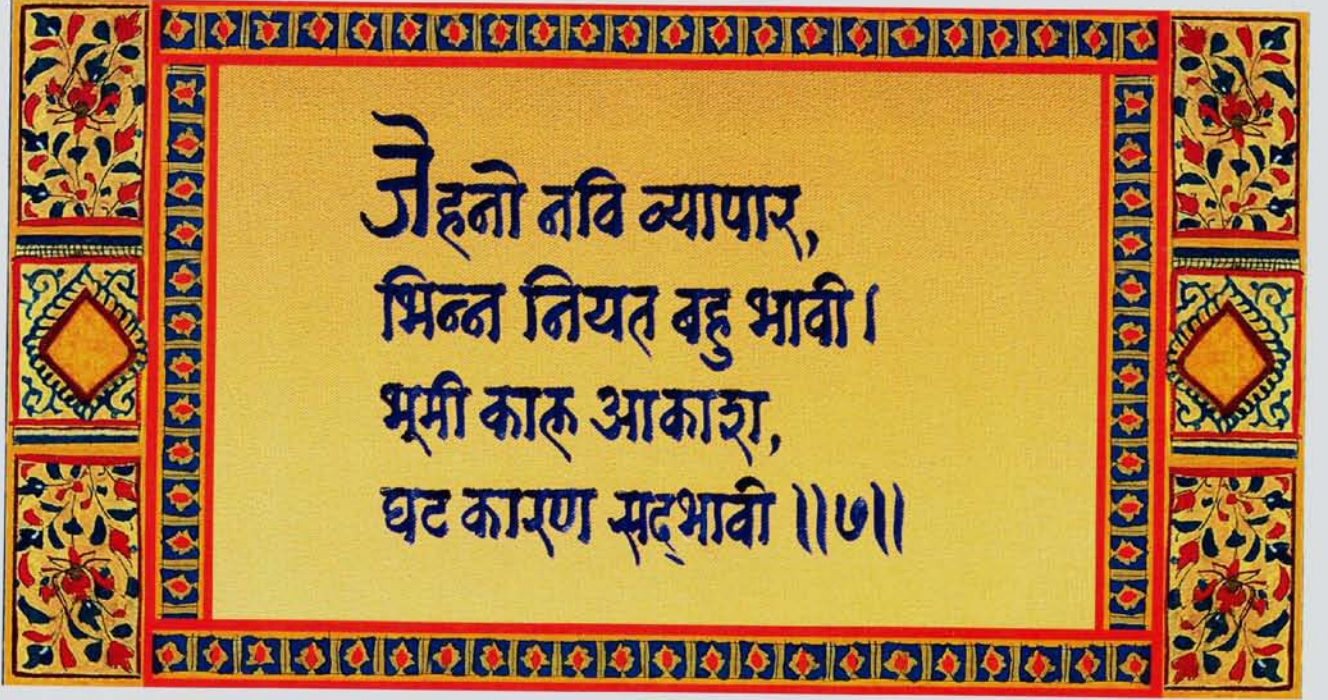 जेहनो नवि व्यापार,
भिन्न नियत बहु भावी।
भूमी काल आकाश,
घट कारण सद्भावी ॥७॥